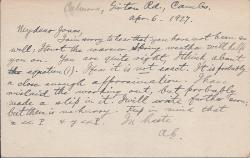 Girton Rd, Cambs.
Apr. 6. 1927.
My dear Jones,
I am sorry to hear that you have not been so
well; I trust the warmer Spring weather will help
you on. You are quite right, I think about
equation (1). Yes it is not exact. It is probably
a close enough approximation. I have
mislaid the working out, but probably
made a slip in it. I will write further soon;
but there is no hurry.
In haste